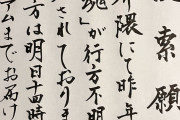 索願
隈にて昨年
魂」が行方不明
されておりま
方は明日十四時
アムまでお届け